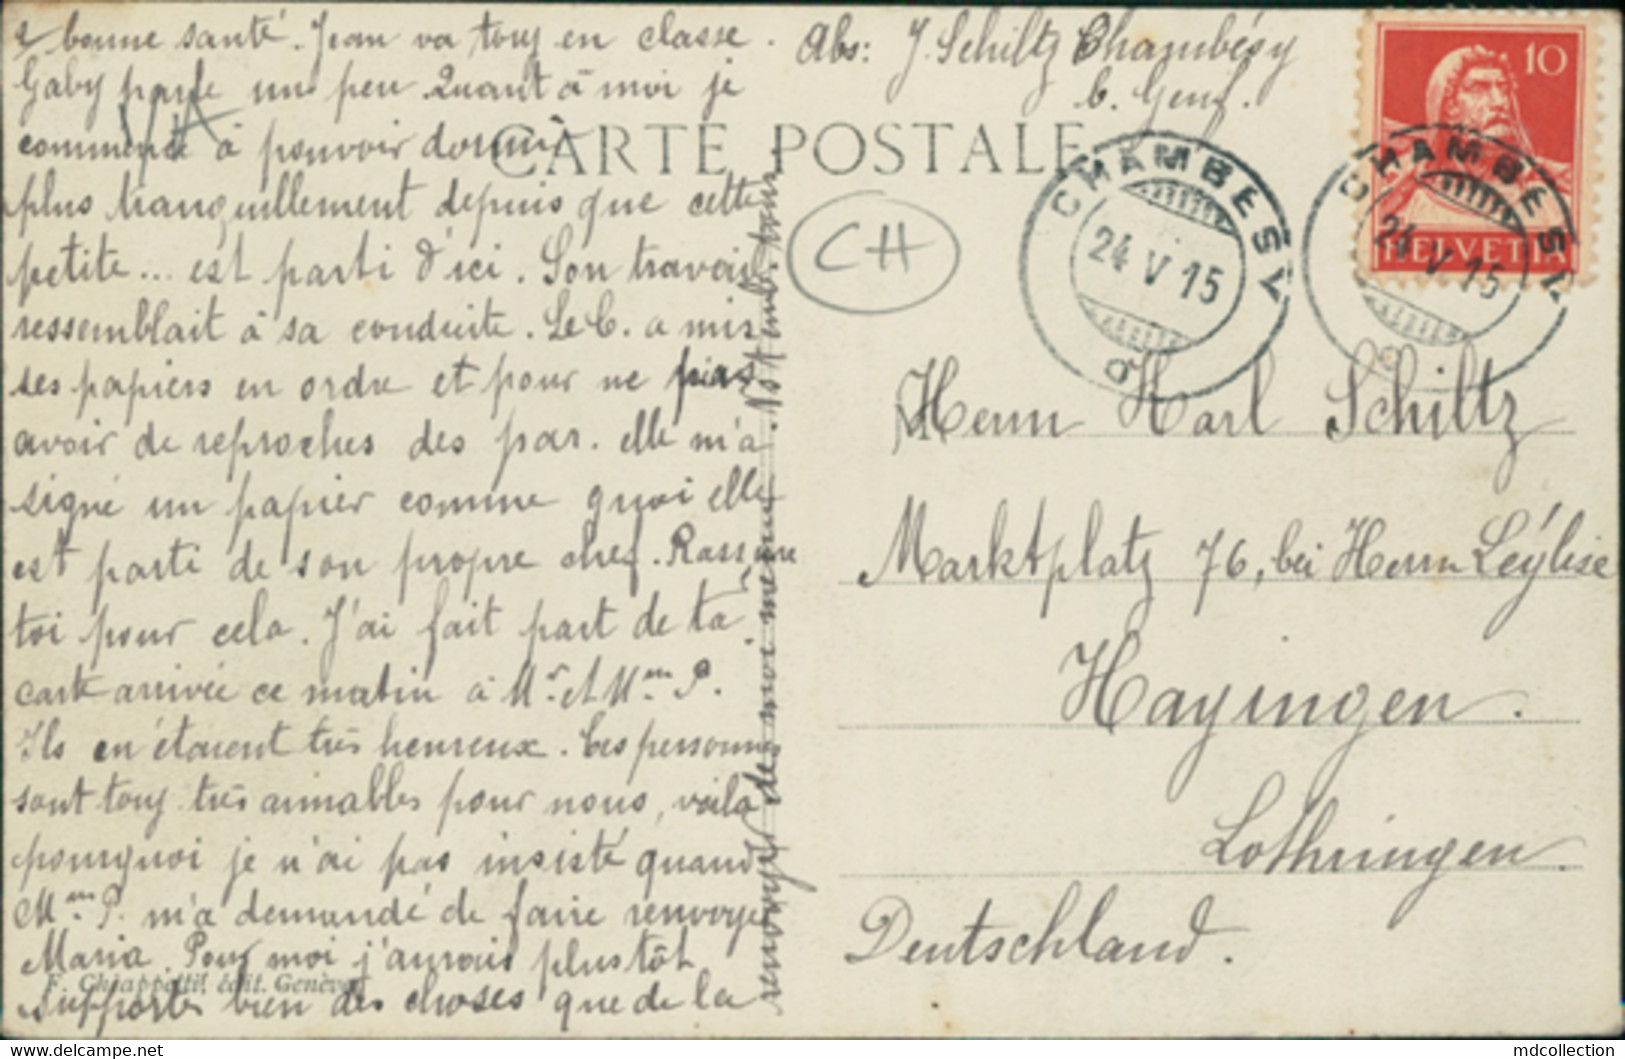 et bonne santé. Jean va touj en classe.
Gaby parle un peu. Quant à moi je
commence à pouvoir dormir
plus tranquillement depuis que cette
petite... est parti d'ici. Son travail
ressemblait à sa conduite. Le C. a mis
ses papiers en ordre et pour ne pas
avoir de reproches des par. elle m'a
signé un papier comme quoi elle
est partie de son propre chef. Rassure
toi pour cela. J'ai fait part de ta
carte arrivée ce matin à Mr et Mme P.
Ils en étaient très heureux. Ces personnes
sont touj très aimables pour nous, voilà
pourquoi je n'ai pas insisté quand
Mme P. m'a demandé de faire renvoyer
Maria. Pour moi j'aurais plustôt
supporté bien des choses que de la
renvoyer de moi même.
F. Chiappelli édit. Genève
Abs: J. Schiltz Chambésy
b. Genf.
CARTE POSTALE
CH
10
HELVETIA
CHAMBESY
24 V 15
CHAMBESY
24 V 15
Herrn Karl Schiltz
Marktplatz 76, bei Herrn Léylise
Hayingen.
Lothringen.
Deutschland.
delcampe.net
mdcollection